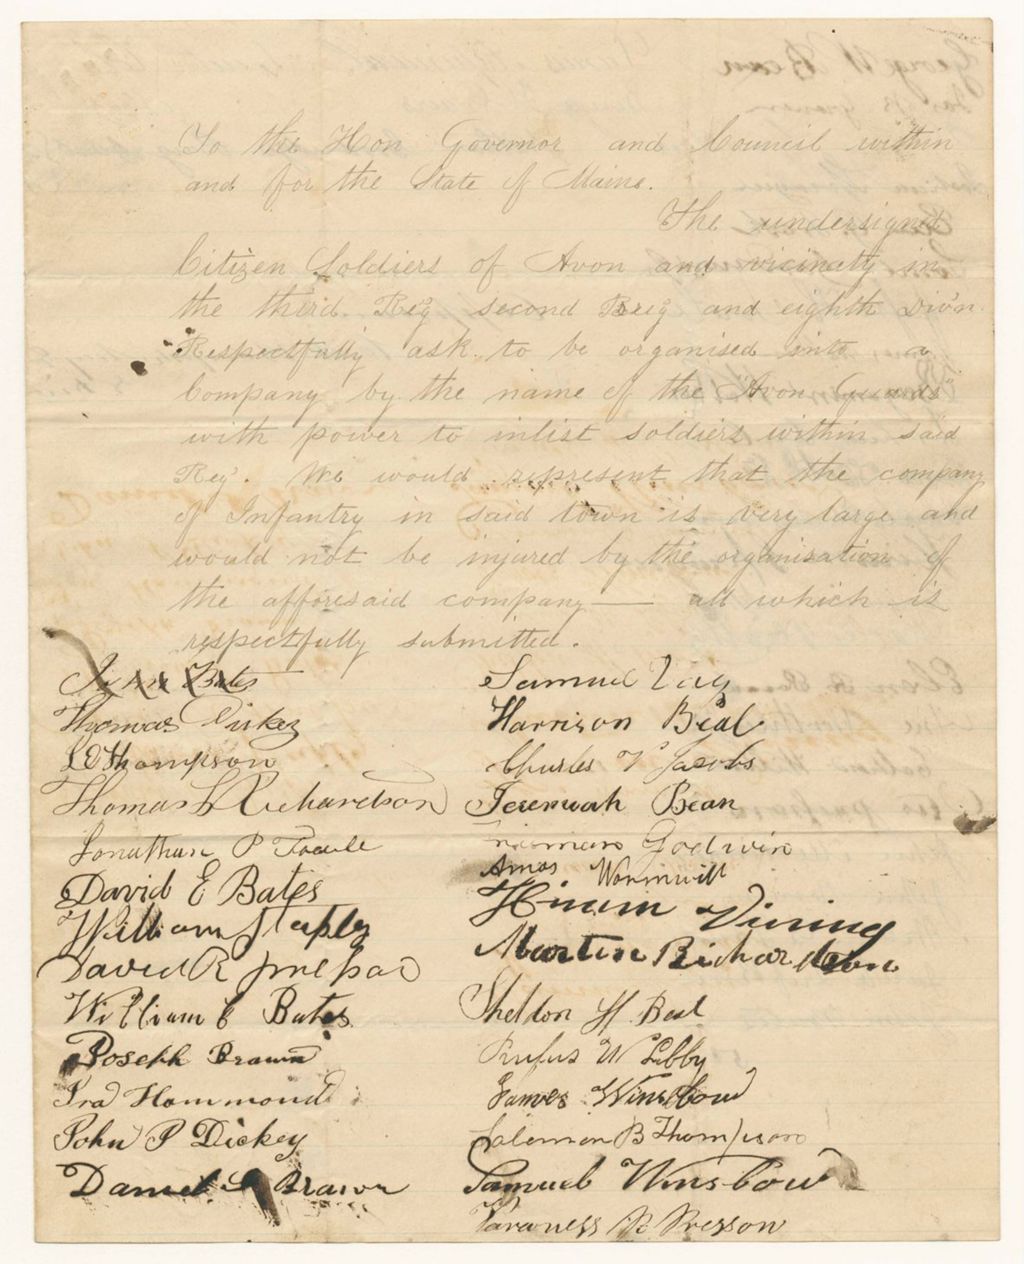 To the Hon Governor and Council within
and for the State of Maine.
The undersigned
Citizen Soldiers of Avon and vicinity in
the third Reg second Brig and eighth Divn
Respectfully ask to be organised into a
Company by the name of the "Avon Guards"
with power to inlist soldiers within said
Reg. We would represent that the company
of Infantry in said town is very large and
would not be injured by the organisation of
the afforesaid company — all which is
respectfully submitted.
Bates
Thomas Dickey
Thompson
Thomas Richardson
Jonathan P
David E Bates
William Stapley
David R
William C Bates
Joseph Brawn
Ira Hammond
John P Dickey
Daniel Brawn
Samuel
Harrison Beal
Charles Jacobs
Jeremiah Bean
Godwin
Amos Wormwill
Hiram Vining
Martin Richardson
Sheldon H Beal
Rufus W Libby
James Winslow
Solomon B Thompson
Samuel Winslow
Presson